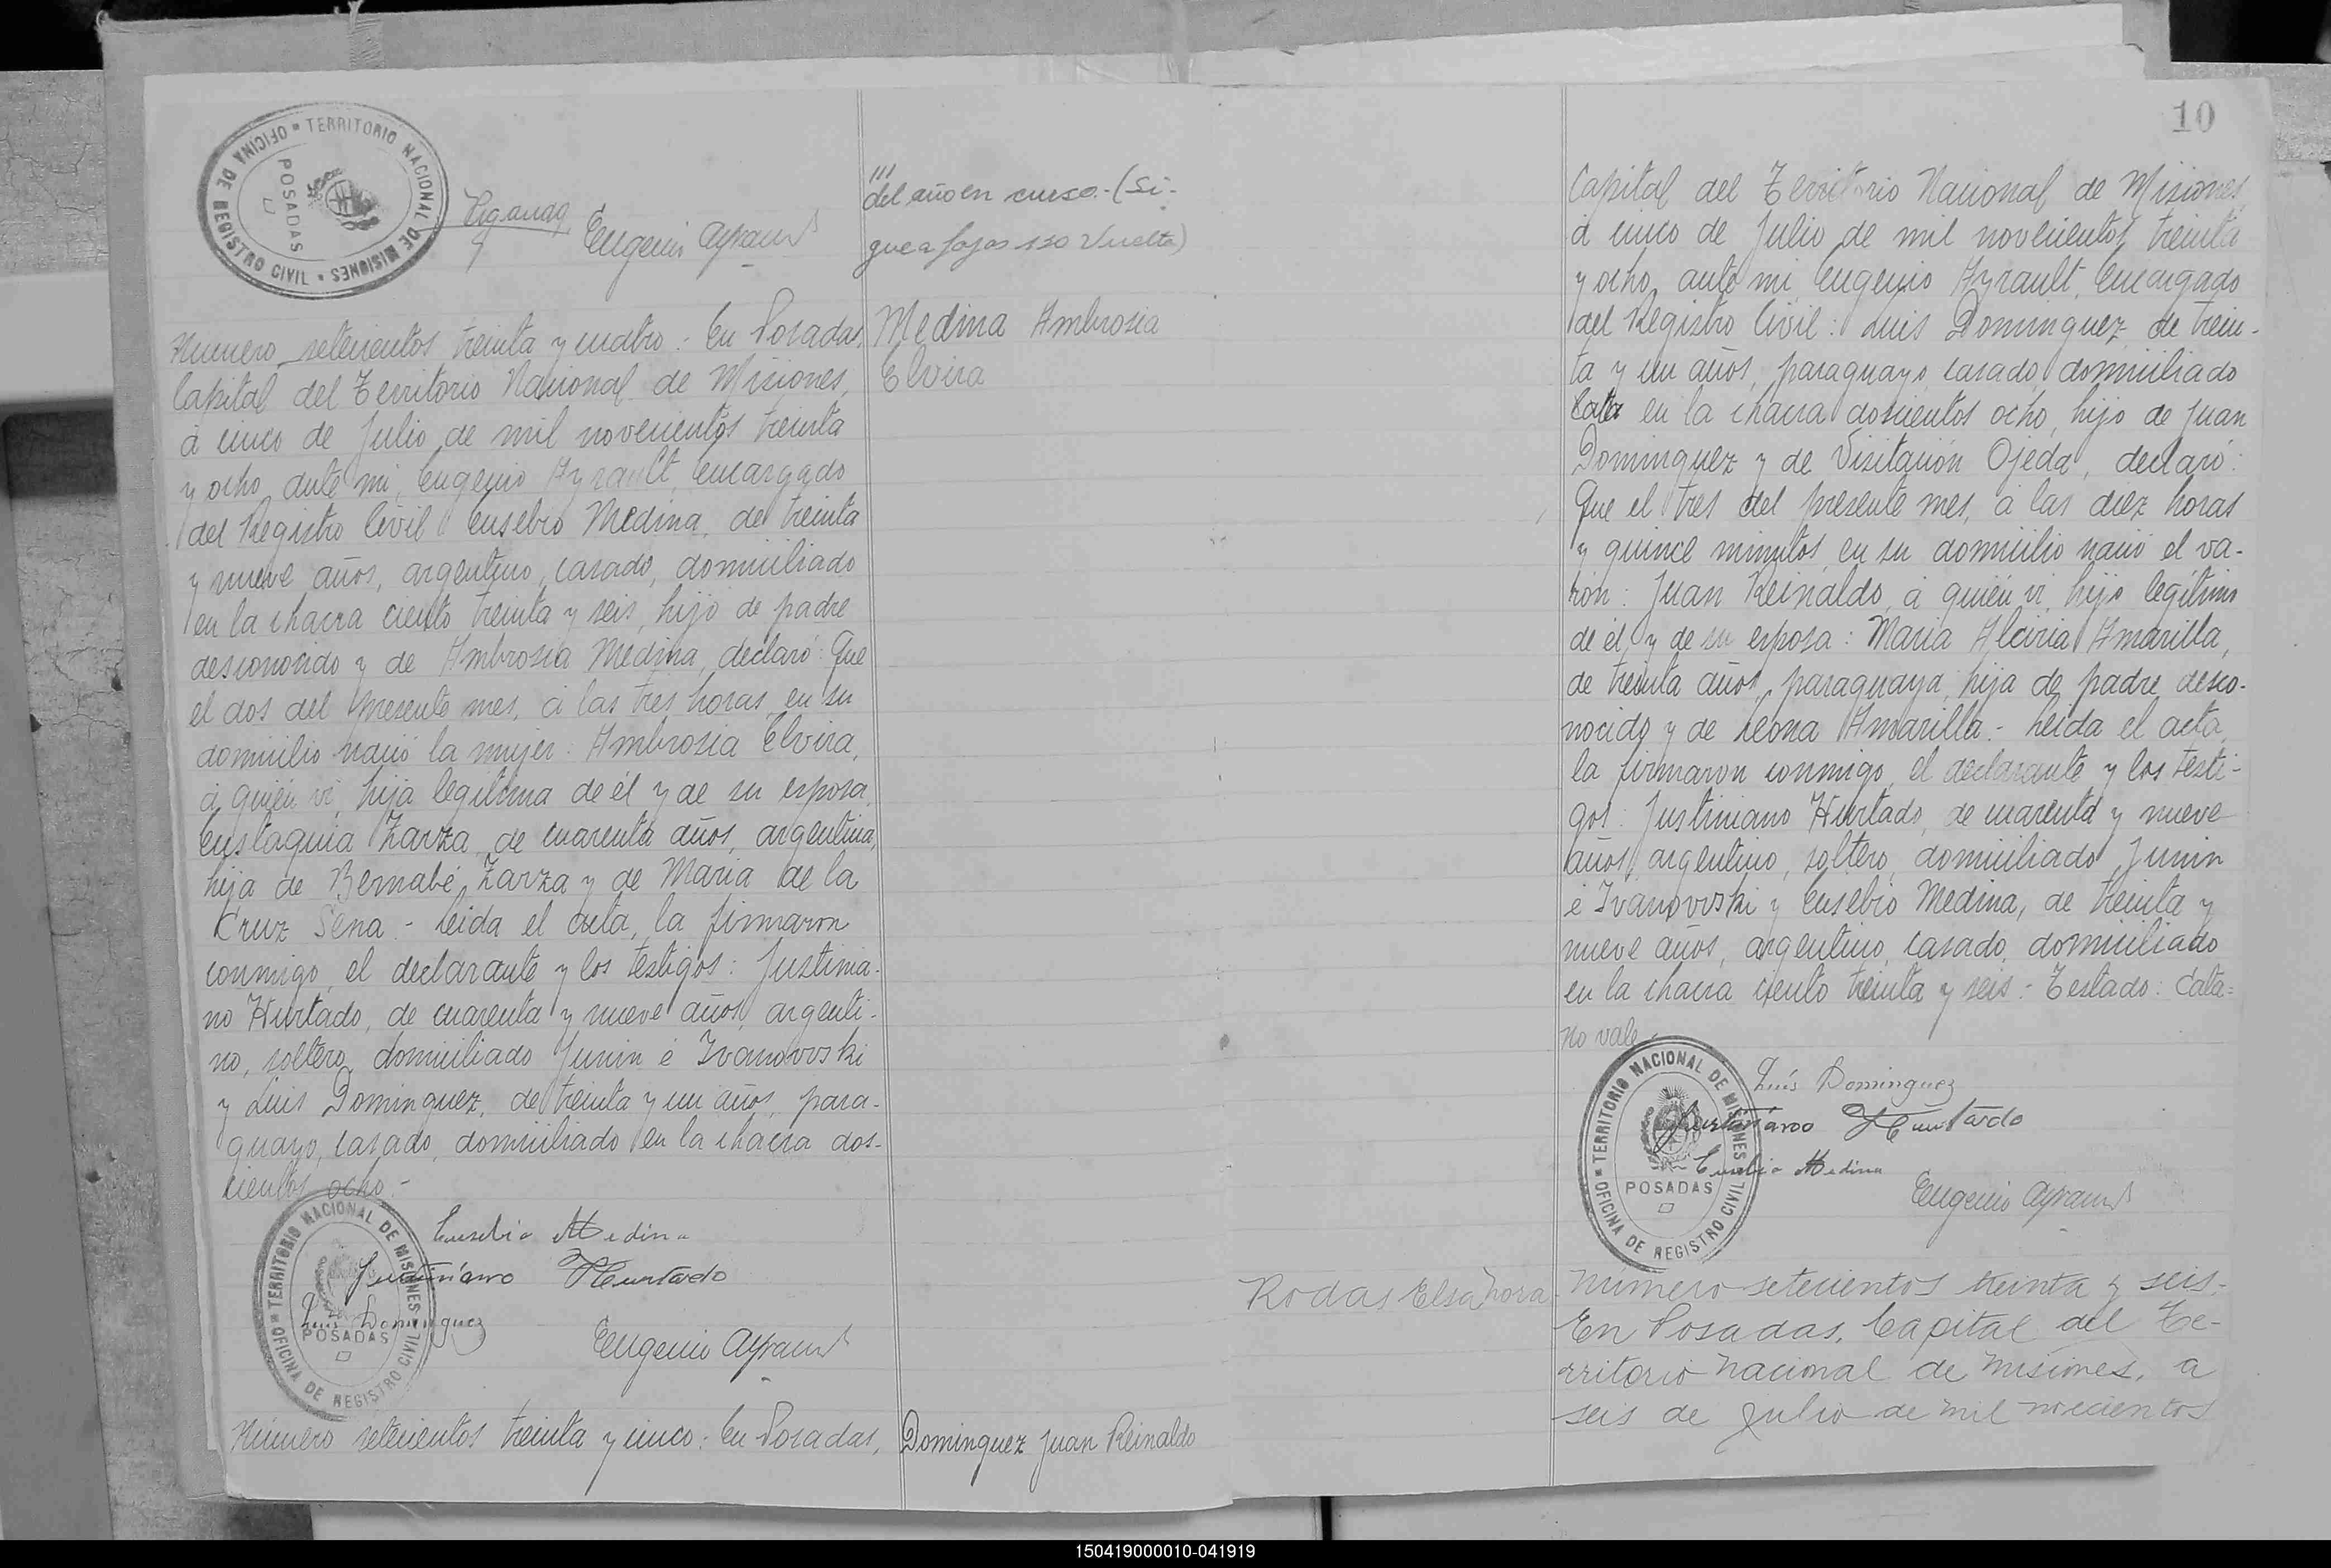 TERRITORIO NACIONAL DE MISIONES
OFICINA DE REGISTRO CIVIL
POSADAS
Eugenio Ayrault
///
del año en curso.- (Si-
gue a fojas 120 Vuelta)
Numero setecientos treinta y cuatro.- En Posadas,
Medina Ambrosia
Elvira
Capital del Territorio Nacional de Misiones,
á cinco de Julio de mil novecientos treinta
y ocho, ante mi, Eugenio Ayrault, encargado
del Registro Civil: Eusebio Medina, de treinta
y nueve años, argentino, casado, domiciliado
en la chacra ciento treinta y seis, hijo de padre
desconocido y de Ambrosia Medina, declaró: Que
el dos del presente mes, á las tres horas, en su
domicilio nació la mujer: Ambrosia Elvira,
á quién vi, hija legítima de él y de su esposa,
Eustaquia Zarza, de cuarenta años, argentina,
hija de Bernabé Zarza y de Maria de la
Cruz Sena.- Leida el acta, la firmaron
conmigo, el declarante y los testigos: Justinia-
no Hurtado, de cuarenta y nueve años, argenti-
no, soltero, domiciliado Junin é Ivanovvski
y Luis Dominguez, de treinta y un años, para-
guayo, casado, domiciliado en la chacra dos-
cientos ocho.-
TERRITORIO NACIONAL DE MISIONES
OFICINA DE REGISTRO CIVIL
POSADAS
Eusebio Medina
Justiniano Hurtado
Luis Dominguez
Eugenio Ayrault
Número setecientos treinta y cinco: En Posadas,
Dominguez Juan Reinaldo
10
Capital del Territorio Nacional de Misiones,
á cinco de Julio de mil novecientos treinta
y ocho, ante mi, Eugenio Ayrault, Encargado
del Registro Civil: Luis Dominguez, de trein-
ta y un años, paraguayo, casado, domiciliado
Cata en la chacra doscientos ocho, hijo de Juan
Dominguez y de Visitación Ojeda, declaró:
Que el tres del presente mes, á las diez horas
y quince minutos, en su domicilio nació el va-
rón: Juan Reinaldo, á quién vi, hijo legítimo
de él, y de su esposa: Maria Alciria Amarilla,
de treinta años, paraguaya, hija de padre desco-
nocido y de Leona Amarilla.- Leida el acta,
la firmaron conmigo, el declarante y los testi-
gos: Justiniano Hurtado, de cuarenta y nueve
años, argentino, soltero, domiciliado Junin
é Ivanovvski y Eusebio Medina, de treinta y
nueve años, argentino, casado, domiciliado
en la chacra ciento treinta y seis.- Testado: Cata=
no vale.-
TERRITORIO NACIONAL DE MISIONES
OFICINA DE REGISTRO CIVIL
POSADAS
Luis Dominguez
Justiniano Hurtado
Eusebio Medina
Eugenio Ayrault
Rodas Elsa Nora.
Número setecientos treinta y seis.
En Posadas, Capital del Te-
rritorio Nacional de Misiones, a
seis de Julio de mil novecientos
150419000010-041919